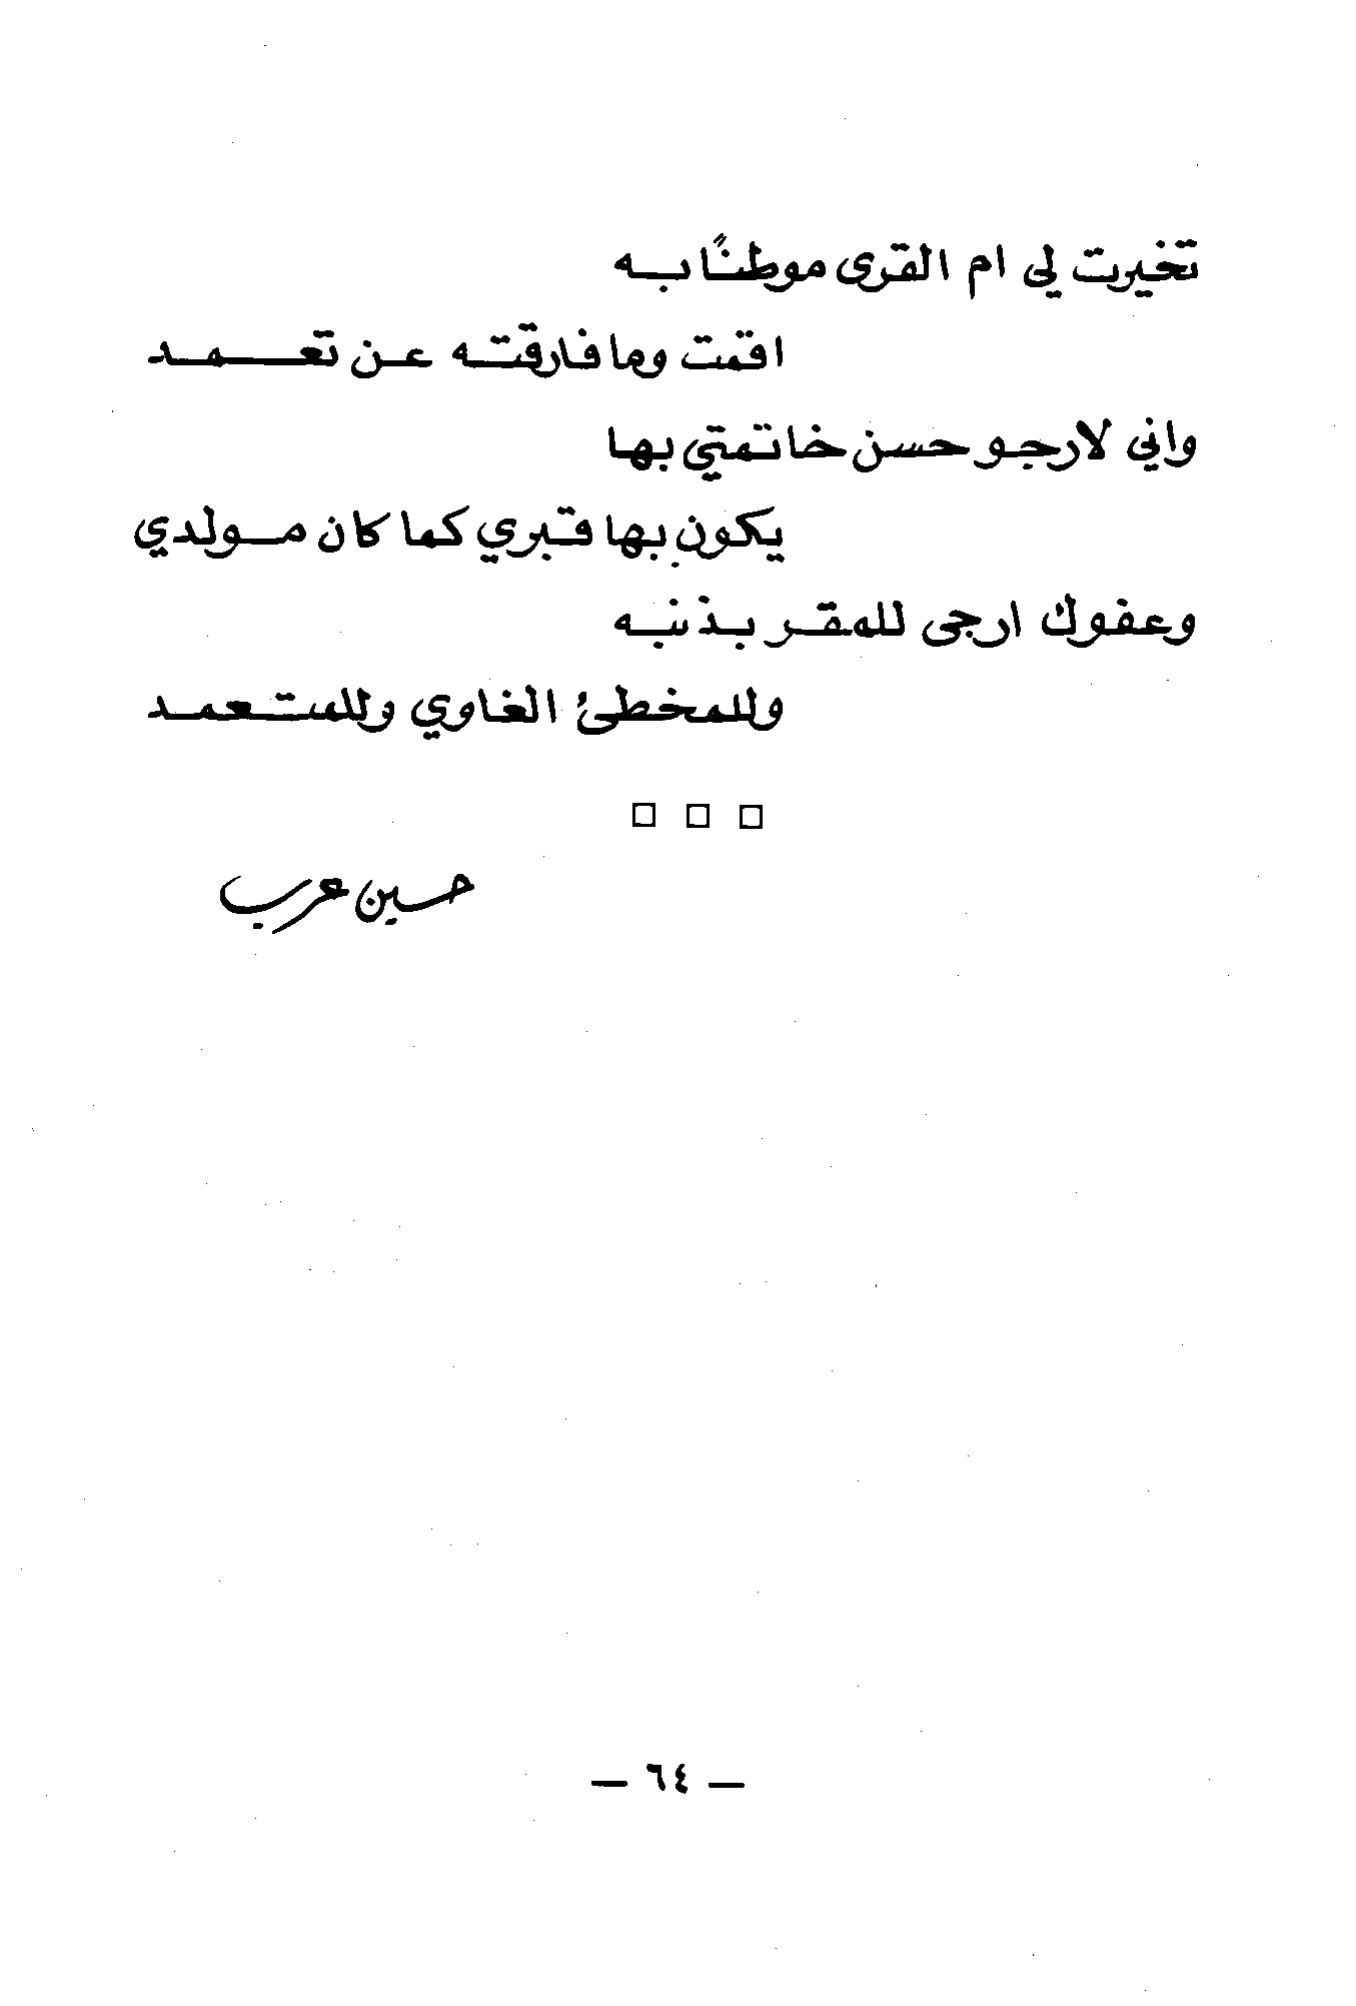 تخيرت لي ام القرى موطنًا به
اقمت وما فارقته عن تعمد
واني لارجو حسن خاتمتي بها
يكون بها قبري كما كان مولدي
وعفوك ارجى للمقر بذنبه
وللمخطئ الغاوي وللمتعمد
□ □ □
حسين عرب
— ٦٤ —